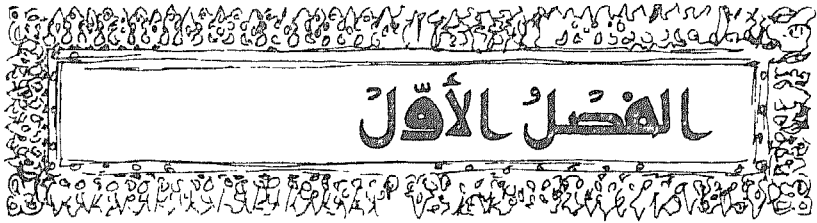 الفصْلُ الأَوّلُ